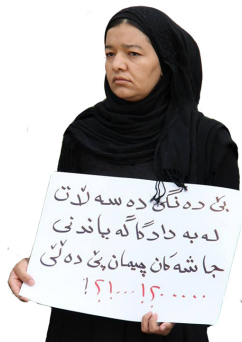 بێ دەنگی دەسەڵات
لەبە دادگاگەیاندنی
جاشەکان چیمان پێ دەڵێ
!؟!...!؟.....